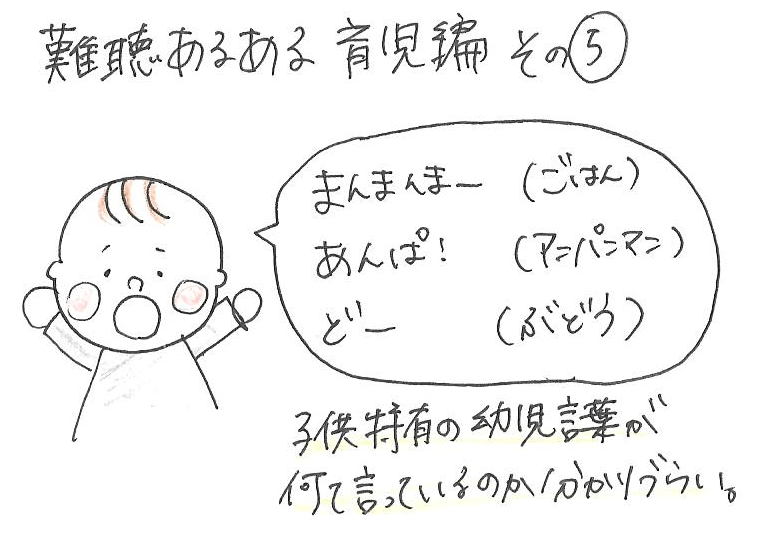 難聴あるある 育児編 その⑤
まんまんまー （ごはん）
あんぱ! （アンパンマン）
どー （ぶどう）
子供特有の幼児言葉が
何て言っているのか分かりづらい。